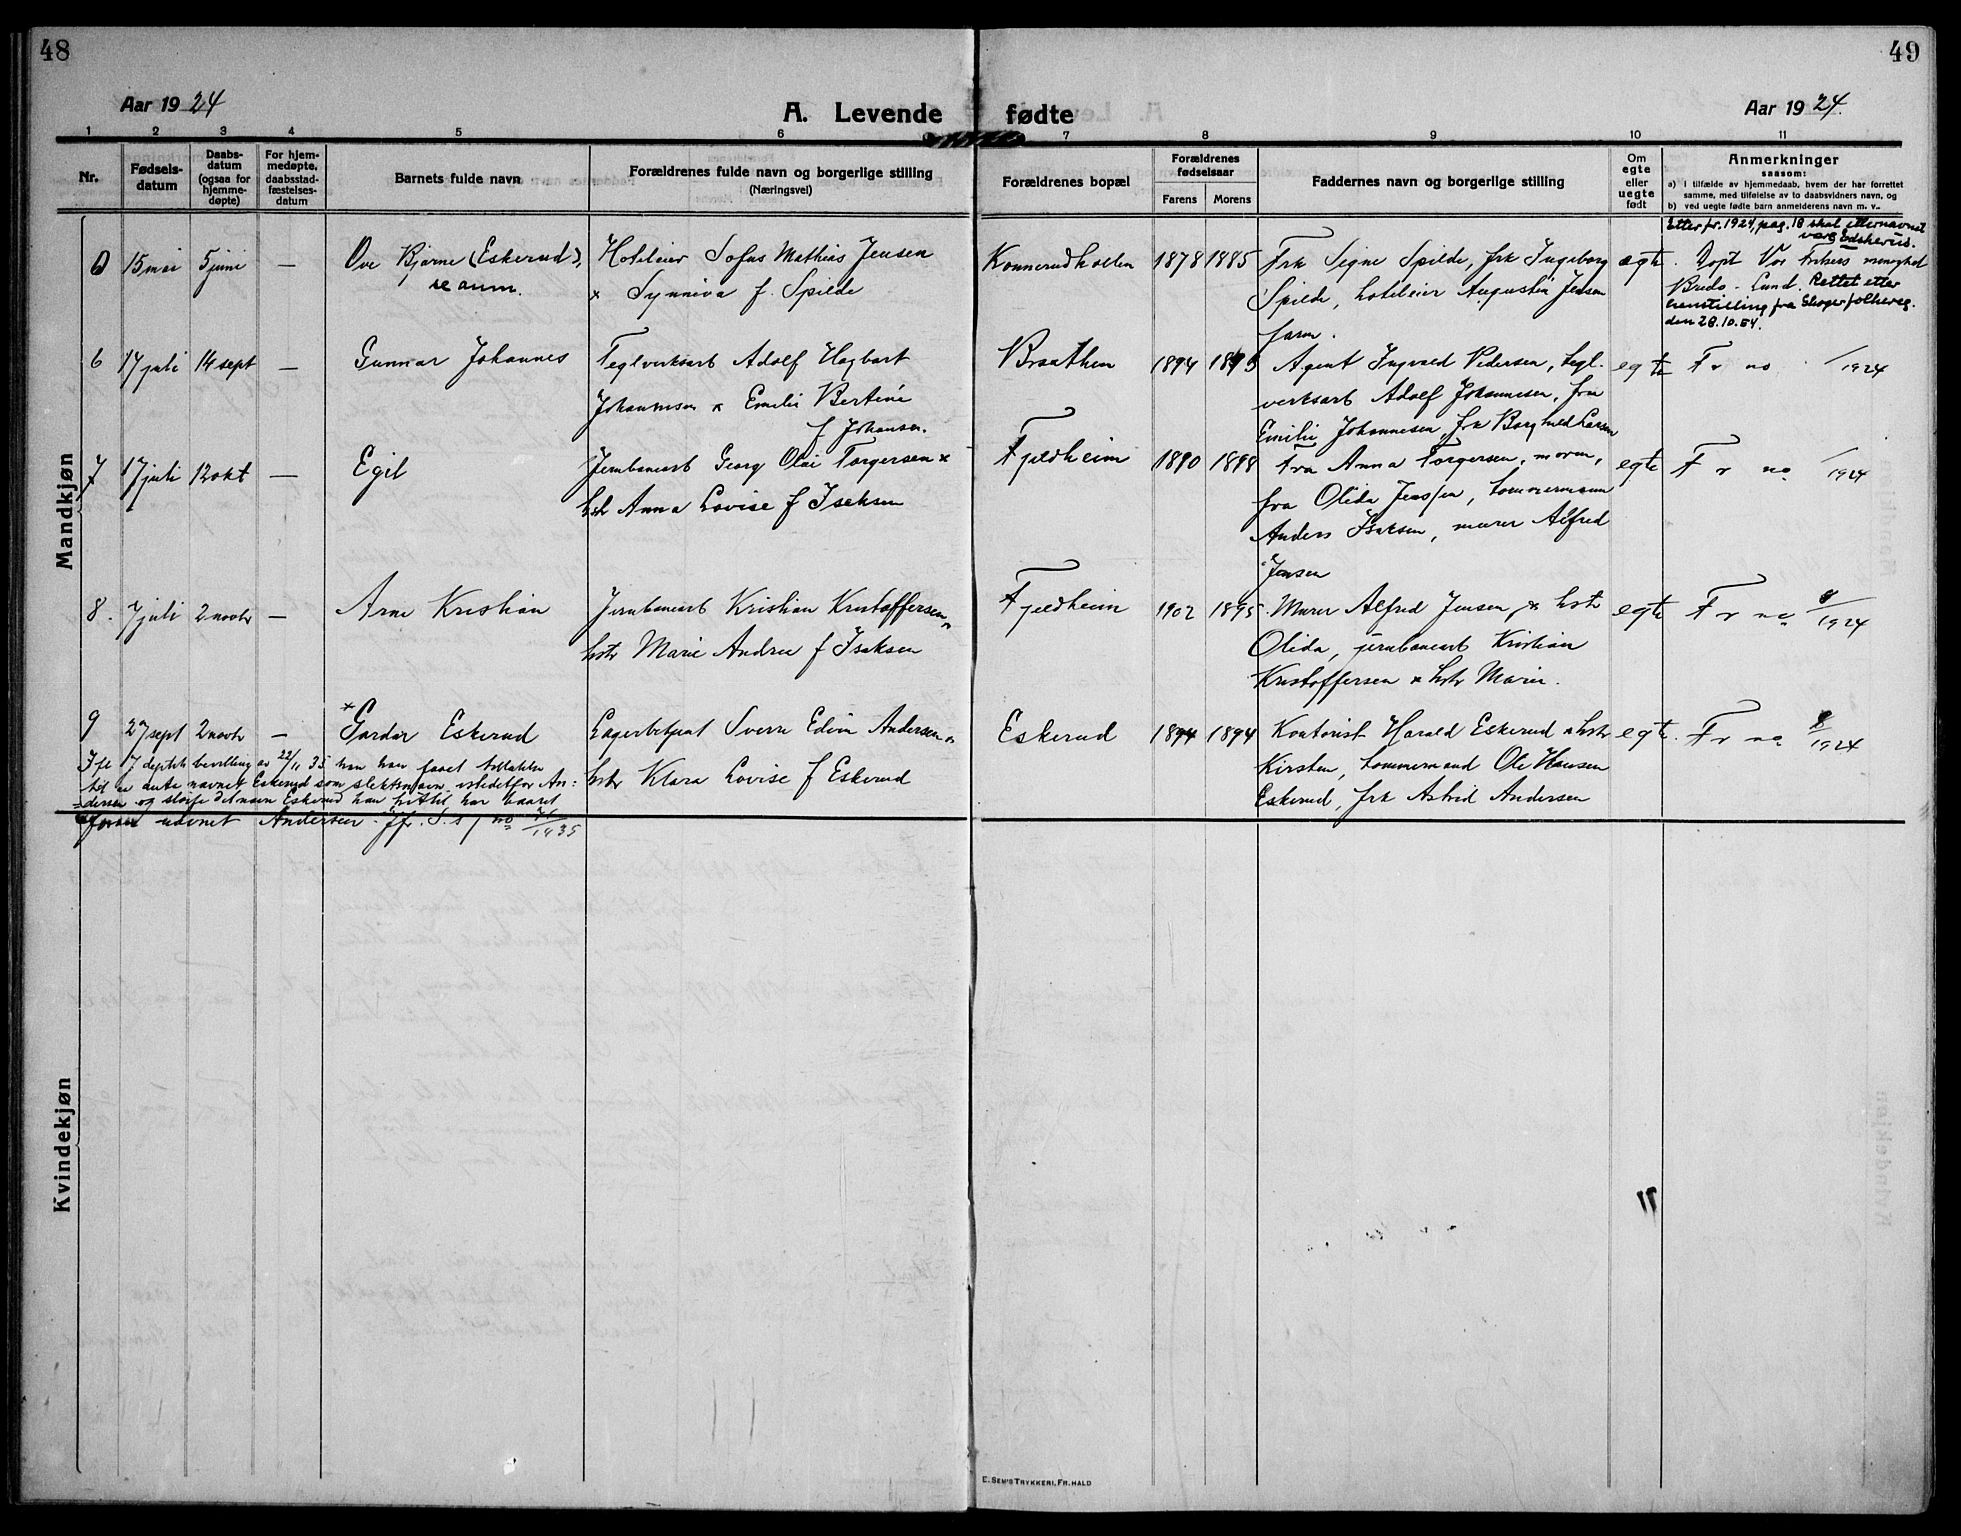 48
49
Aar 1924
A. Levende fødte
Aar 1924.
1 2 3 4 5 6 7 8 9 10 11
Nr.
Fødsels-
datum
Daabs-
datum
(ogsaa for
hjemme-
døpte)
For hjem-
medøpte,
daabsstad-
fæstelses-
datum
Barnets fulde navn
Forældrenes fulde navn og borgerlige stilling
(Næringsvei)
Forældrenes bopæl
Forældrenes
fødselsaar
Farens Morens
Faddernes navn og borgerlige stilling
Om
egte
eller
uegte
født
Anmerkninger
saasom:
a) i tilfælde av hjemmedaab, hvem der har forrettet
samme, med tilføielse av to daabsvidners navn, og
b) ved uegte fødte barn anmelderens navn m. v..
Mandkjøn
15 mai 5 juni —
Ove Bjarne (Eskerud),
se anm.
Hoteleier Sofus Mathias Jensen
x Synneva f. Spilde
Konnerudkollen 1878 1885
Frk Signe Spilde, frk Ingeborg
Spilde, hoteleier Augustin Jensen
egte.
Etter fr. 1924, pag. 18 skal etternavnet
være Edskerud.
Døpt Vor Frelsers menighed
Lund. Rettet etter
henstilling fra Skoger folkereg.
den 28.10.54.
6 17 juli 14 sept —
Gunnar Johannes
Teglverksarb Adolf Hagbart
Johannesen x Emilie Bertine
f Johansen.
Braathen 1894 1895
Agent Ingvald Pedersen, tegl.
verksarb Adolf Johannesen, fru
Emilie Johannesen, frk Borghild Larsen
egte F r no /1924
7 17 juli 12 okt —
Egil
Jernbanearb Georg Olai Torgersen x
hstr Anna Lovise f Isaksen
Fjeldheim 1890 1898
Fra Anna Torgersen, moren,
fra Olida Jenssen, tømmermann
Anders Isaksen, murer Alfred
Jensen
egte F r no /1924
8. 7 juli 2 novbr —
Arne Kristian
Jernbanearb Kristian Kristoffersen x
hstr Marie Andrea f Isaksen
Fjeldheim 1902 1895
Murer Alfred Jensen x hstr
Olida, jernbanearb Kristian
Kristoffersen x hstr Marie.
egte F r no 9/1924
9 27 sept 2 novbr —
*Gardar Eskerud
Lagerbetjent Sverre Edvin Andersen x
hstr Klara Lovise f Eskerud
Eskerud 1894 1894
Kontorist Harald Eskerud x hstr
Kirsten, tømmermand Ole Hansen
Eskerud, frk Astrid Andersen
egte. F r no 8/1924
Ifl J deptets bevilling av 22/11 35 han faaet tilladelse
til at anta navnet Eskerud som slektsnavn istedetfor An-
dersen og sløife det navn Eskerud han hittil har baaret
Andersen. Jfr. S.s j no 71/1935
Kvindekjøn
E. SEM'S TRYKKERI, FR.HALD